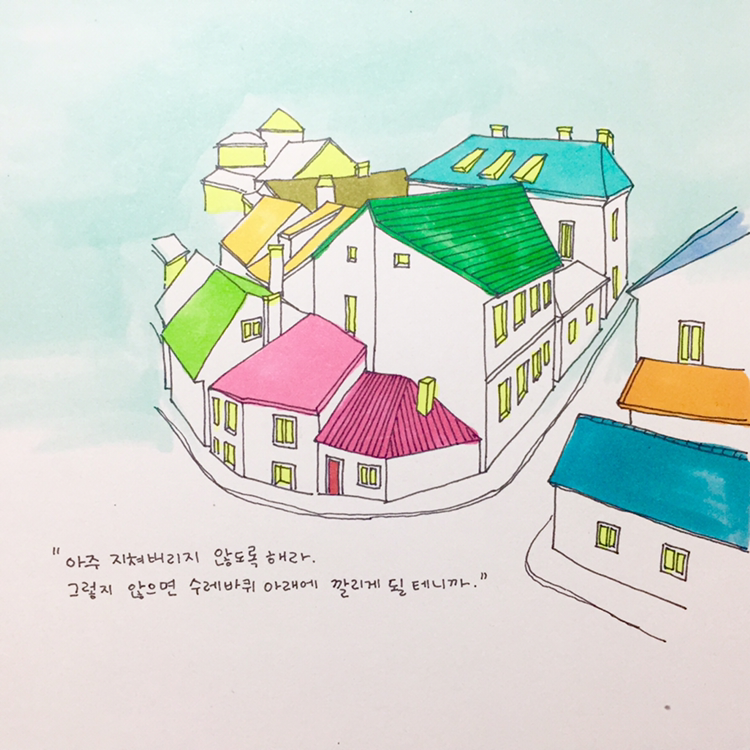 "아주 지쳐버리지 않도록 해라.
그렇지 않으면 수레바퀴 아래에 깔리게 될 테니까."